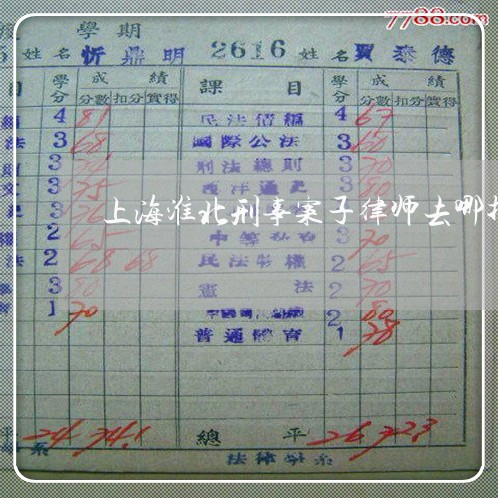 7788.com
學期
姓名 忻鼎明 2616 姓名 賈泰德
目 學分 成績 課目 學分 成績
分數 扣分 實得 分數 扣分 實得
4 81 民法債編 4 67
法 3 68 國際公法 3 60
3 刑法總則 3 70
3 75 西洋通史 3 80
上海淮北刑事案子律师去哪
2 65 3 70
法 2 68 68 民法物權 2 65
3 80 憲法 2 70
1 70 2 80
普通體育 1 78
平 24 74.1 總平 26 72.3
系 法律學系